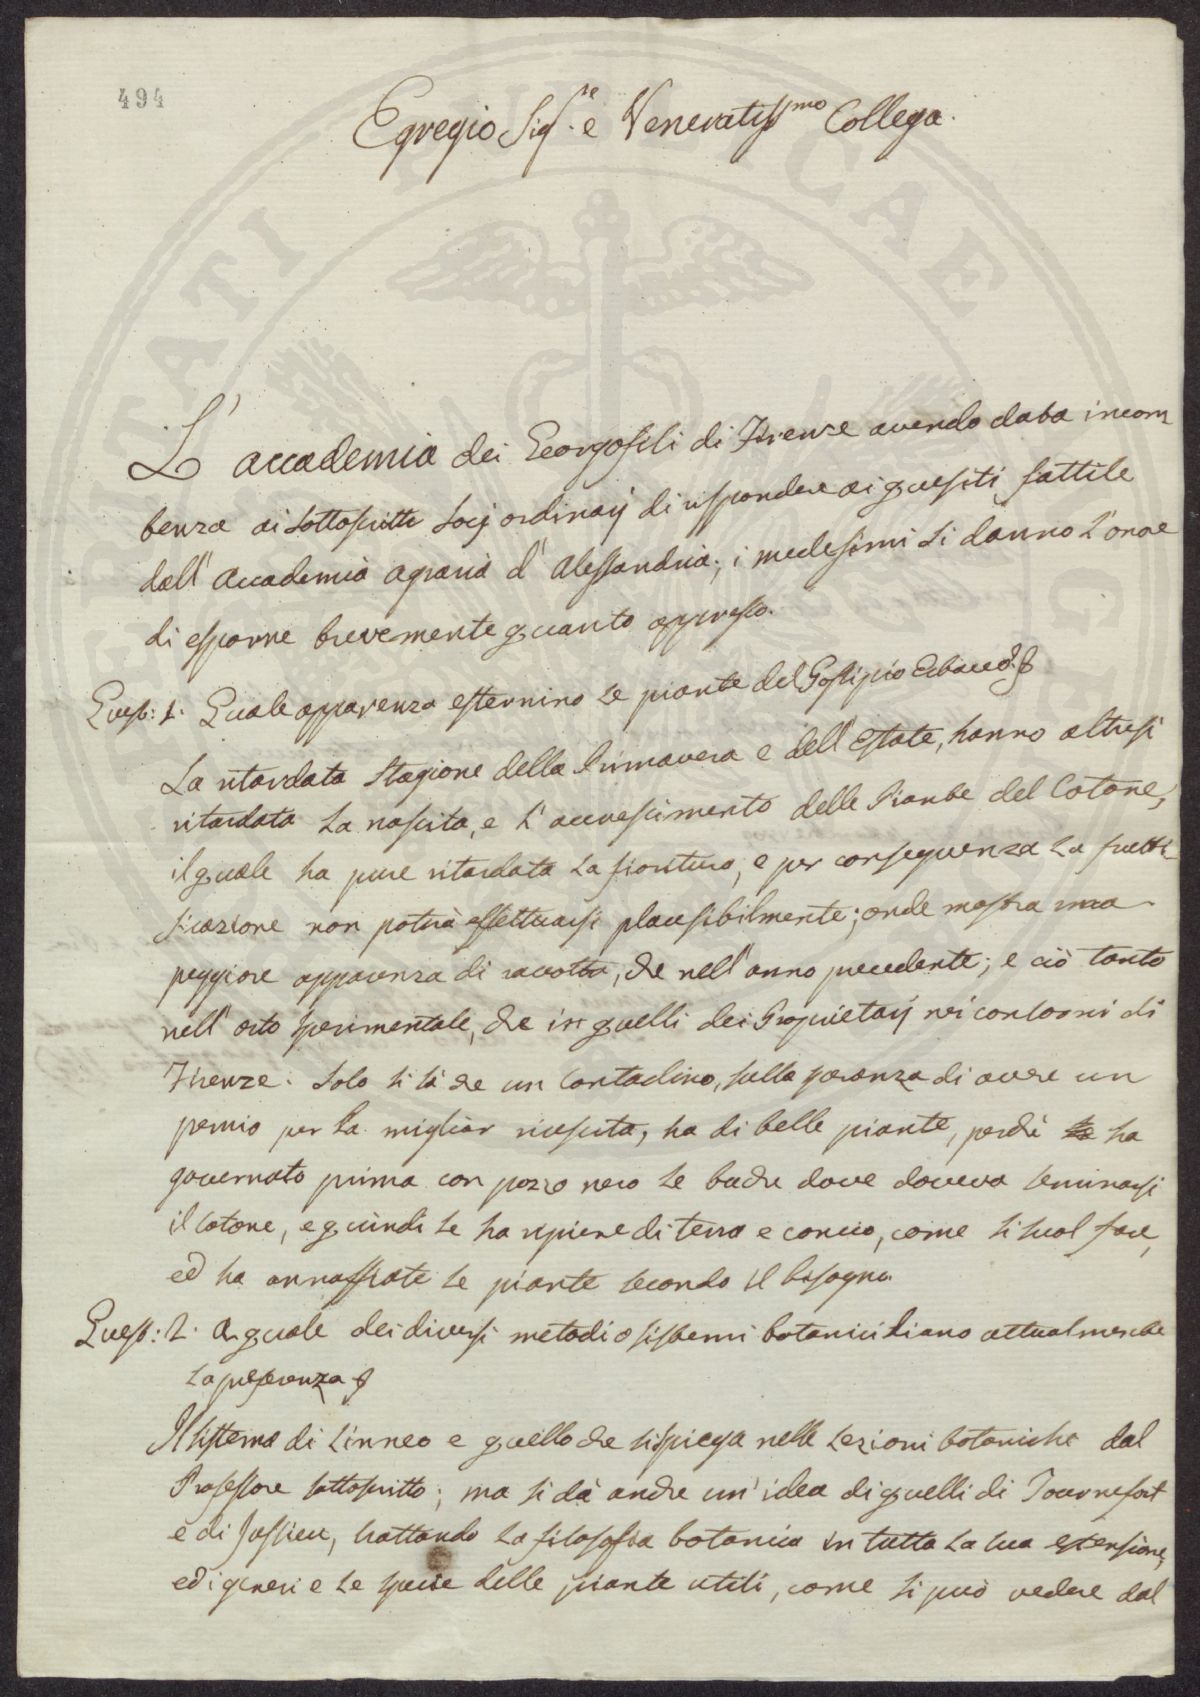 494
Egregio Sig.re e Veneratiss.mo Collega.
L'accademia dei Georgofili di Firenze avendo data incom
benza ai sottoscritti Socj ordinarj di rispondere ai quesiti fattile
dall'Accademia agraria d'Alessandria; i medesimi si danno l'onore
di esporne brevemente quanto appresso.
Ques: 1. Quale apparenza esternino le piante del Gossipio Erbaceo?
La ritardata Stagione della Primavera e dell'Estate, hanno altresì
ritardata la nascita, e l'accrescimento delle Piante del Cotone,
il quale ha pure ritardata la fioritura, e per conseguenza la frutti-
ficazione non potrà effettuarsi plausibilmente; onde mostra una
peggiore apparenza di raccolta, che nell'anno precedente; e ciò tanto
nell'orto sperimentale, che in quelli dei Proprietarj nei contorni di
Firenze. Solo si sà che un Contadino, sulla speranza di avere un
premio per la miglior riuscita, ha di belle piante, perchè ha
governato prima con pozzo nero le buche dove doveva seminarsi
il Cotone, e quindi le ha ripiene di terra e concio, come si suol fare,
ed ha annaffiate le piante secondo il bisogno.
Ques: 2. A quale dei diversi metodi o sistemi botanici diano attualmente
la preferenza?
Il sistema di Linneo e quello che si spiega nelle Lezioni botaniche dal
Professore sottoscritto; ma si dà anche un'idea di quelli di Tournefort
e di Jussieu, trattando la filosofia botanica in tutta la sua estensione,
ed i generi e le specie delle piante utili, come si può vedere dal